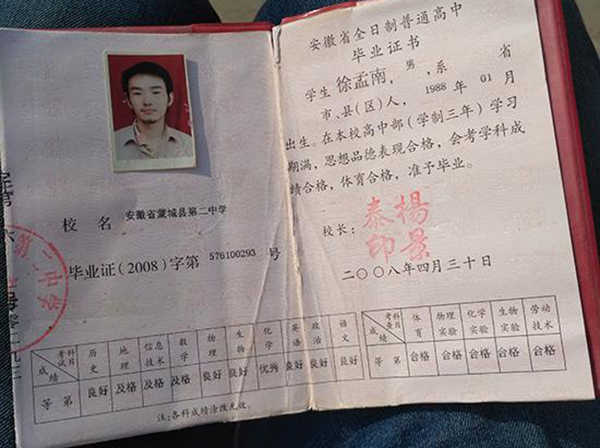 校名 安徽省蒙城县第二中学
毕业证(2008)字第 576100293 号
考试科目 历史 地理 信息技术 数学 物理 生物 化学 英语 政治 语文
成绩
等第 良好 及格 及格 及格 良好 良好 优秀 良好 良好 良好
注:各科成绩涂改无效。
安徽省全日制普通高中
毕业证书
学生 徐孟南,男,系 省
市、县(区)人,1988年01月
出生。在本校高中部(学制三年)学习
期满,思想品德表现合格,会考学科成
绩合格,体育合格,准予毕业。
校长: 楊景泰印
二〇〇八年四月三十日
考查科目 体育 物理实验 化学实验 生物实验 劳动技术
成绩
等第 合格 合格 合格 合格 合格